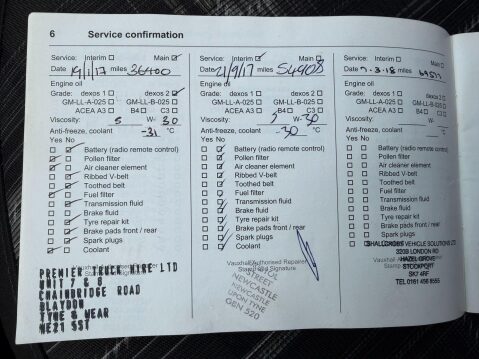 6 Service confirmation
Service: Interim Main
Date 19/1/17 miles 36400
Engine oil
Grade: dexos 1 dexos 2
GM-LL-A-025 GM-LL-B-025
ACEA A3 B4 C3
Viscosity: 5 W- 30
Anti-freeze, coolant -31 °C
Yes No
Battery (radio remote control)
Pollen filter
Air cleaner element
Ribbed V-belt
Toothed belt
Fuel filter
Transmission fluid
Brake fluid
Tyre repair kit
Brake pads front / rear
Spark plugs
Coolant
PREMIER TRUCK HIRE LTD
UNIT 7 & 8
CHAINBRIDGE ROAD
BLAYDON
TYNE & WEAR
NE21 5ST
Service: Interim Main
Date 21/9/17 miles 54908
Engine oil
Grade: dexos 1 dexos 2
GM-LL-A-025 GM-LL-B-025
ACEA A3 B4 C3
Viscosity: W- 30
Anti-freeze, coolant -30 °C
Yes No
Battery (radio remote control)
Pollen filter
Air cleaner element
Ribbed V-belt
Toothed belt
Fuel filter
Transmission fluid
Brake fluid
Tyre repair kit
Brake pads front / rear
Spark plugs
Coolant
Vauxhall Authorised Repairer
Stamp and Signature
STREET
NEWCASTLE
NEWCASTLE
UPON TYNE
Service: Interim Main
Date 7.3.18 miles
Engine oil
Grade: dexos 1 dexos 2
GM-LL-A-025 GM-LL-B-025
ACEA A3 B4 C3
Viscosity: W-
Anti-freeze, coolant °C
Yes No
Battery (radio remote control)
Pollen filter
Air cleaner element
Ribbed V-belt
Toothed belt
Fuel filter
Transmission fluid
Brake fluid
Tyre repair kit
Brake pads front / rear
Spark plugs
SHALLCROSS VEHICLE SOLUTIONS LTD
320B LONDON RD
HAZEL GROVE
STOCKPORT
SK7 4RF
TEL 0161 456 8555